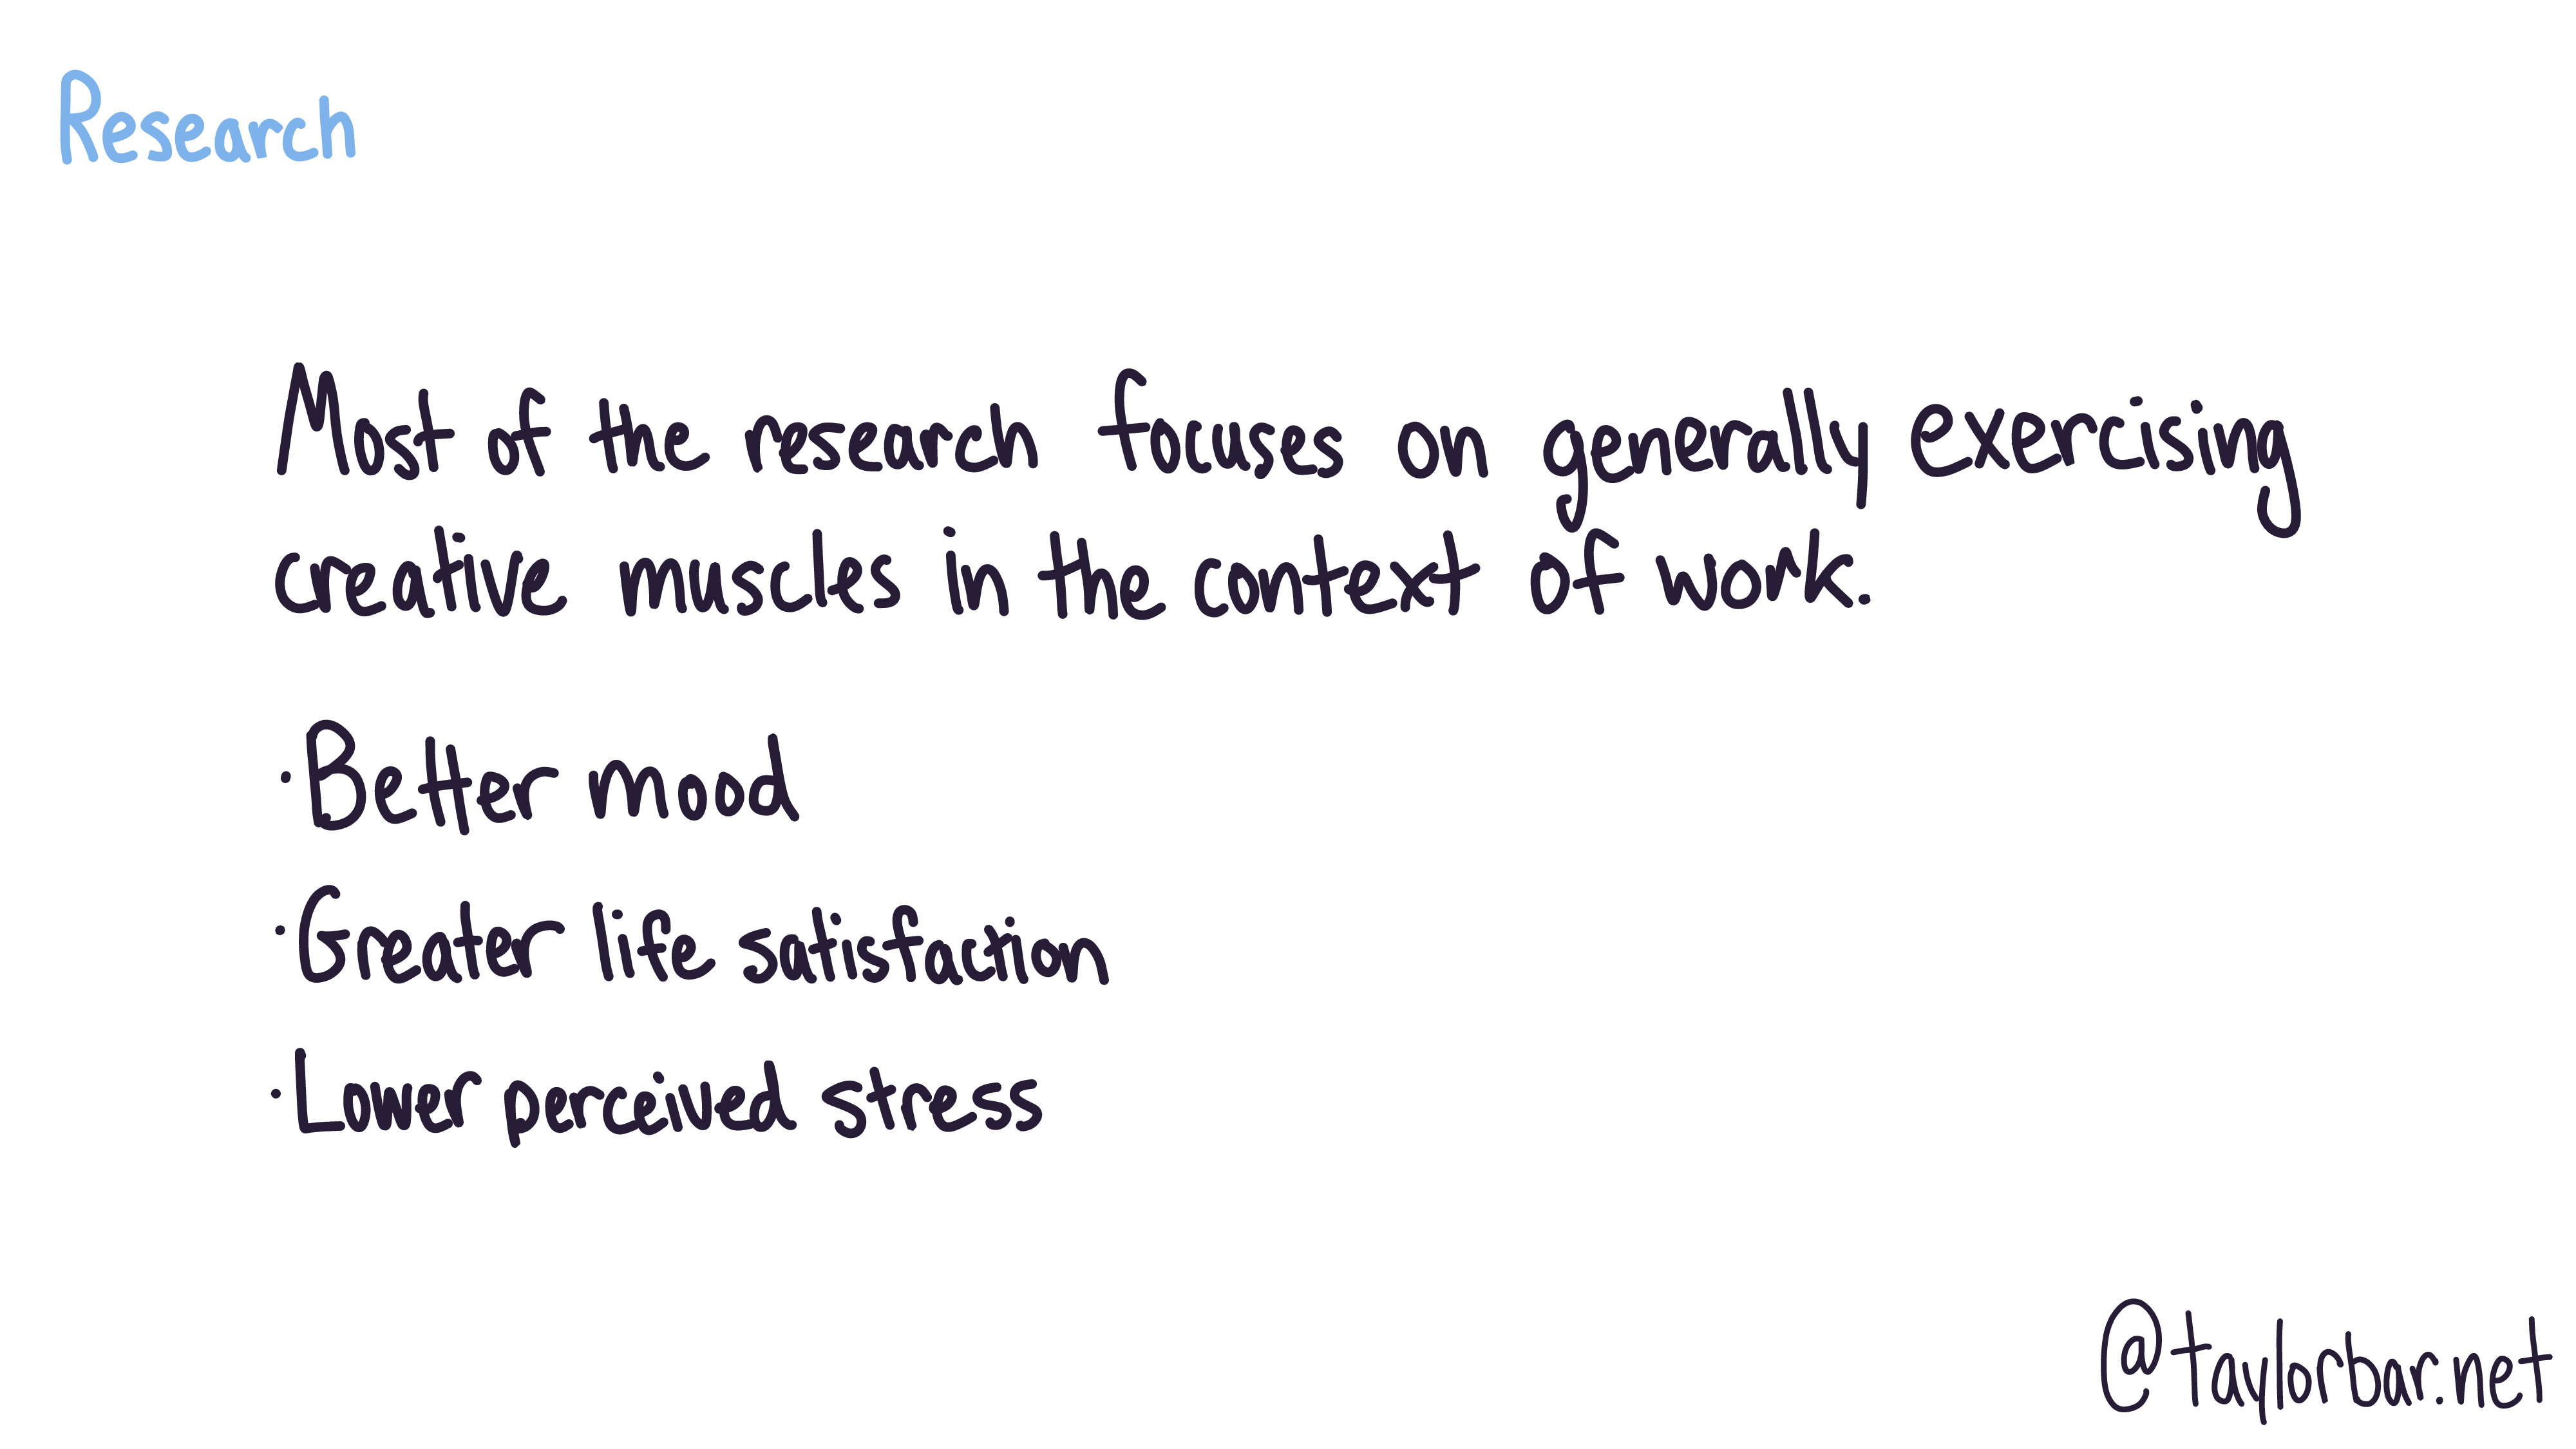 Research
Most of the research focuses on generally exercising
creative muscles in the context of work.
· Better mood
· Greater life satisfaction
· Lower perceived stress
@taylorbar.net